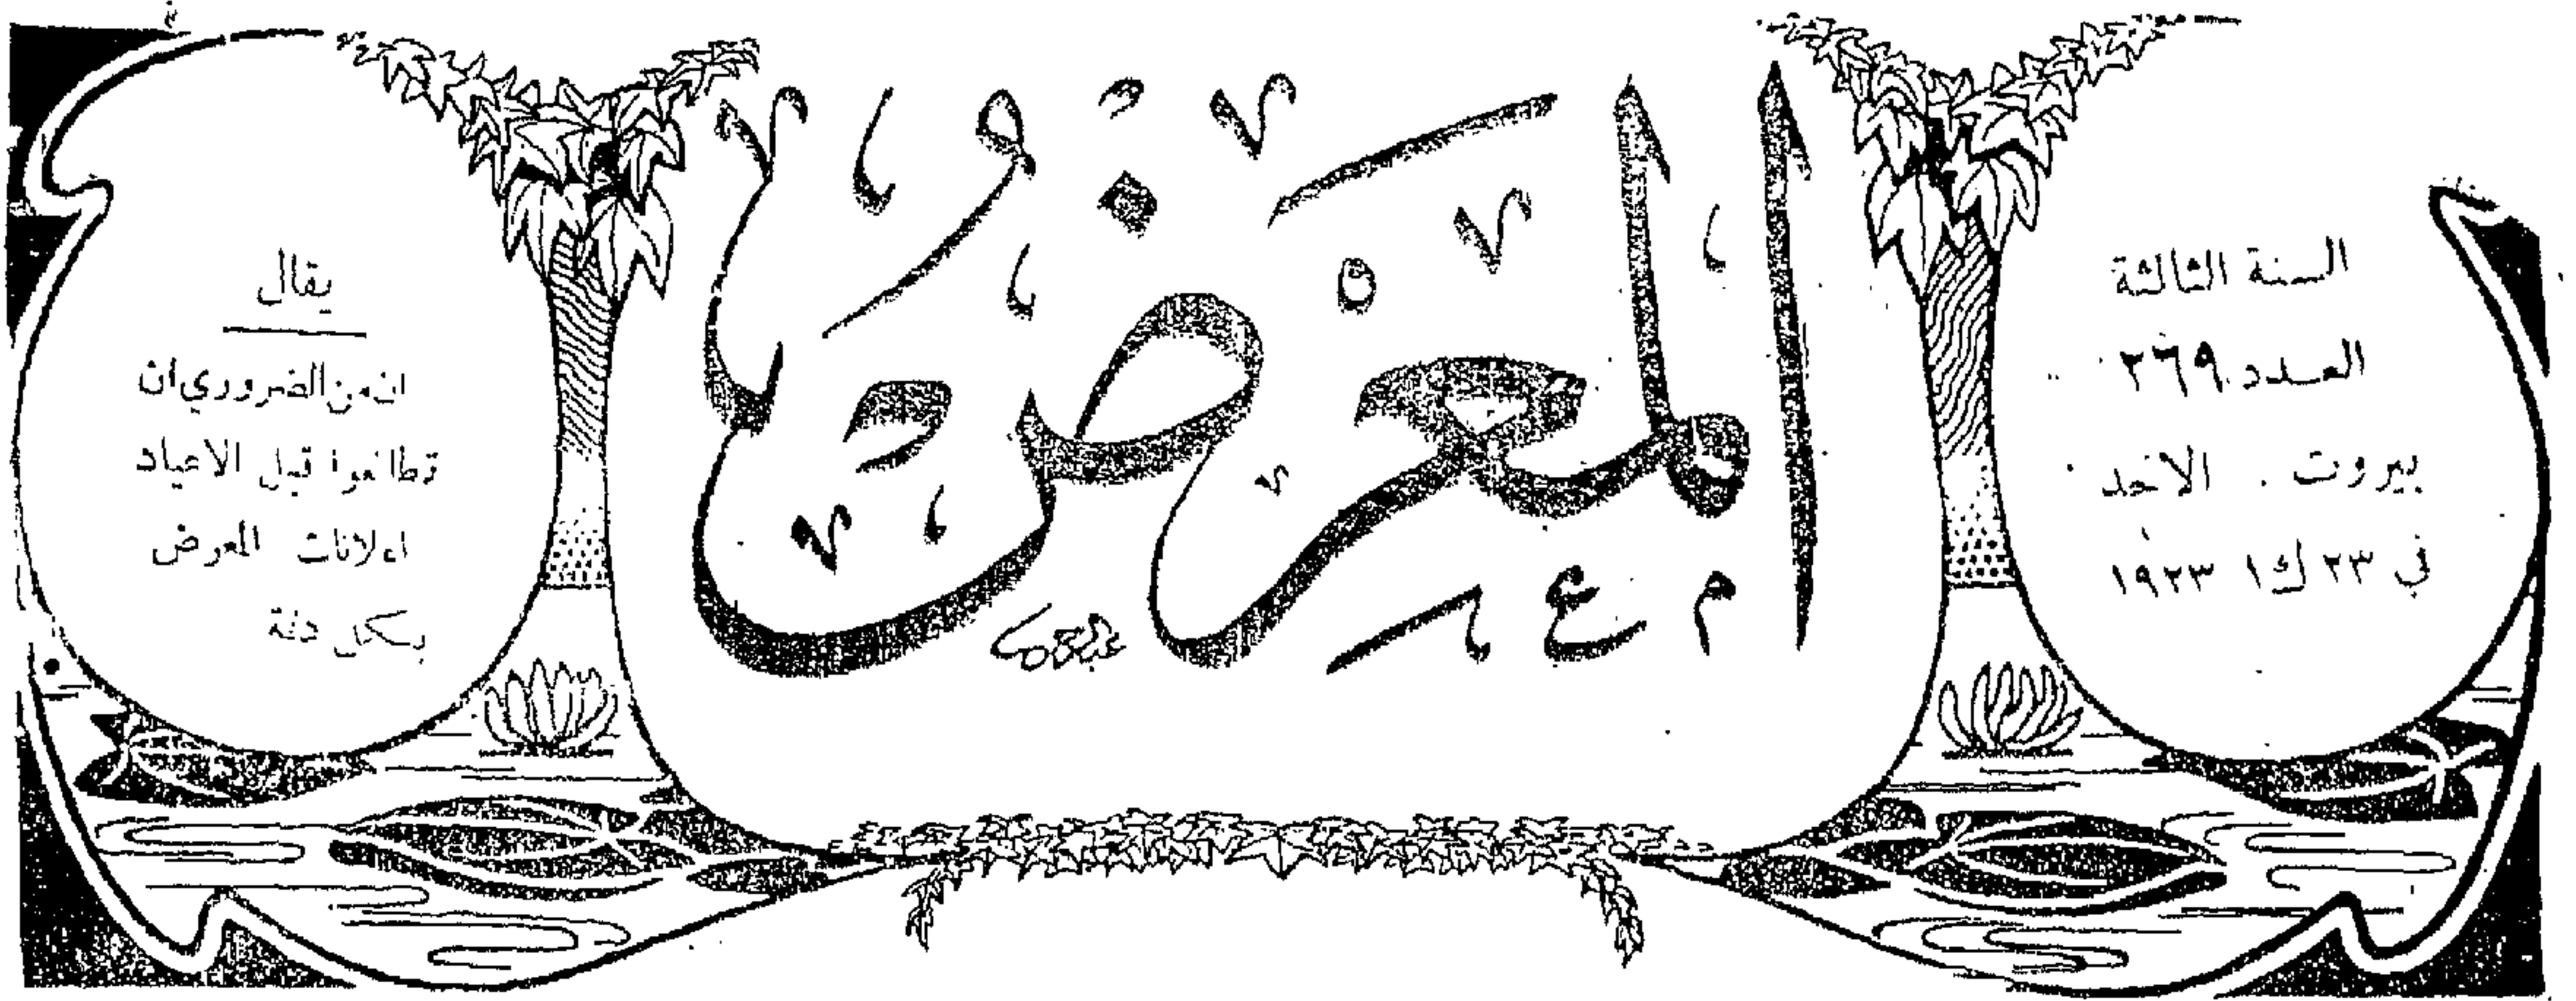 السنة الثالثة
العدد ٢٦٩
بيروت . الاحد
في ٢٣ ك١ ١٩٢٣
المعرض
يقال
ان من الضروري ان
تطالعوا قبل الاعياد
اعلانات المعرض
بكل دقة